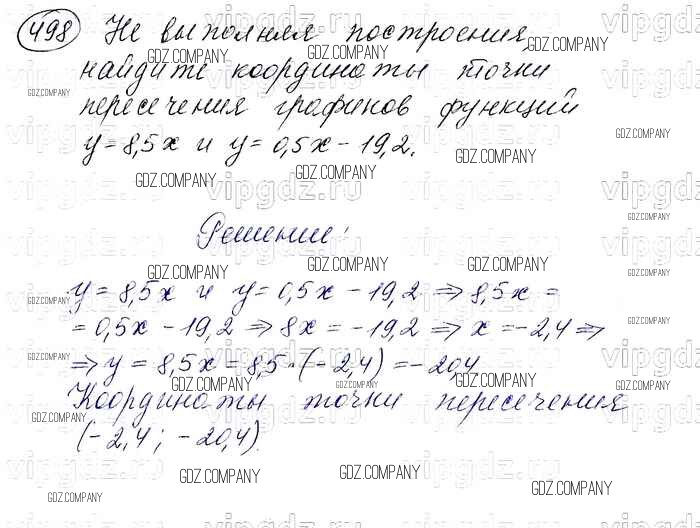 498 Не выполняя построения,
найдите координаты точки
пересечения графиков функций
y = 8,5x и y = 0,5x - 19,2.
Решение:
y = 8,5x и y = 0,5x - 19,2 ⇒ 8,5x =
= 0,5x - 19,2 ⇒ 8x = -19,2 ⇒ x = -2,4 ⇒
⇒ y = 8,5x = 8,5·(-2,4) = -20,4.
Координаты точки пересечения
(-2,4; -20,4).
GDZ.COMPANY
vipgdz.ru